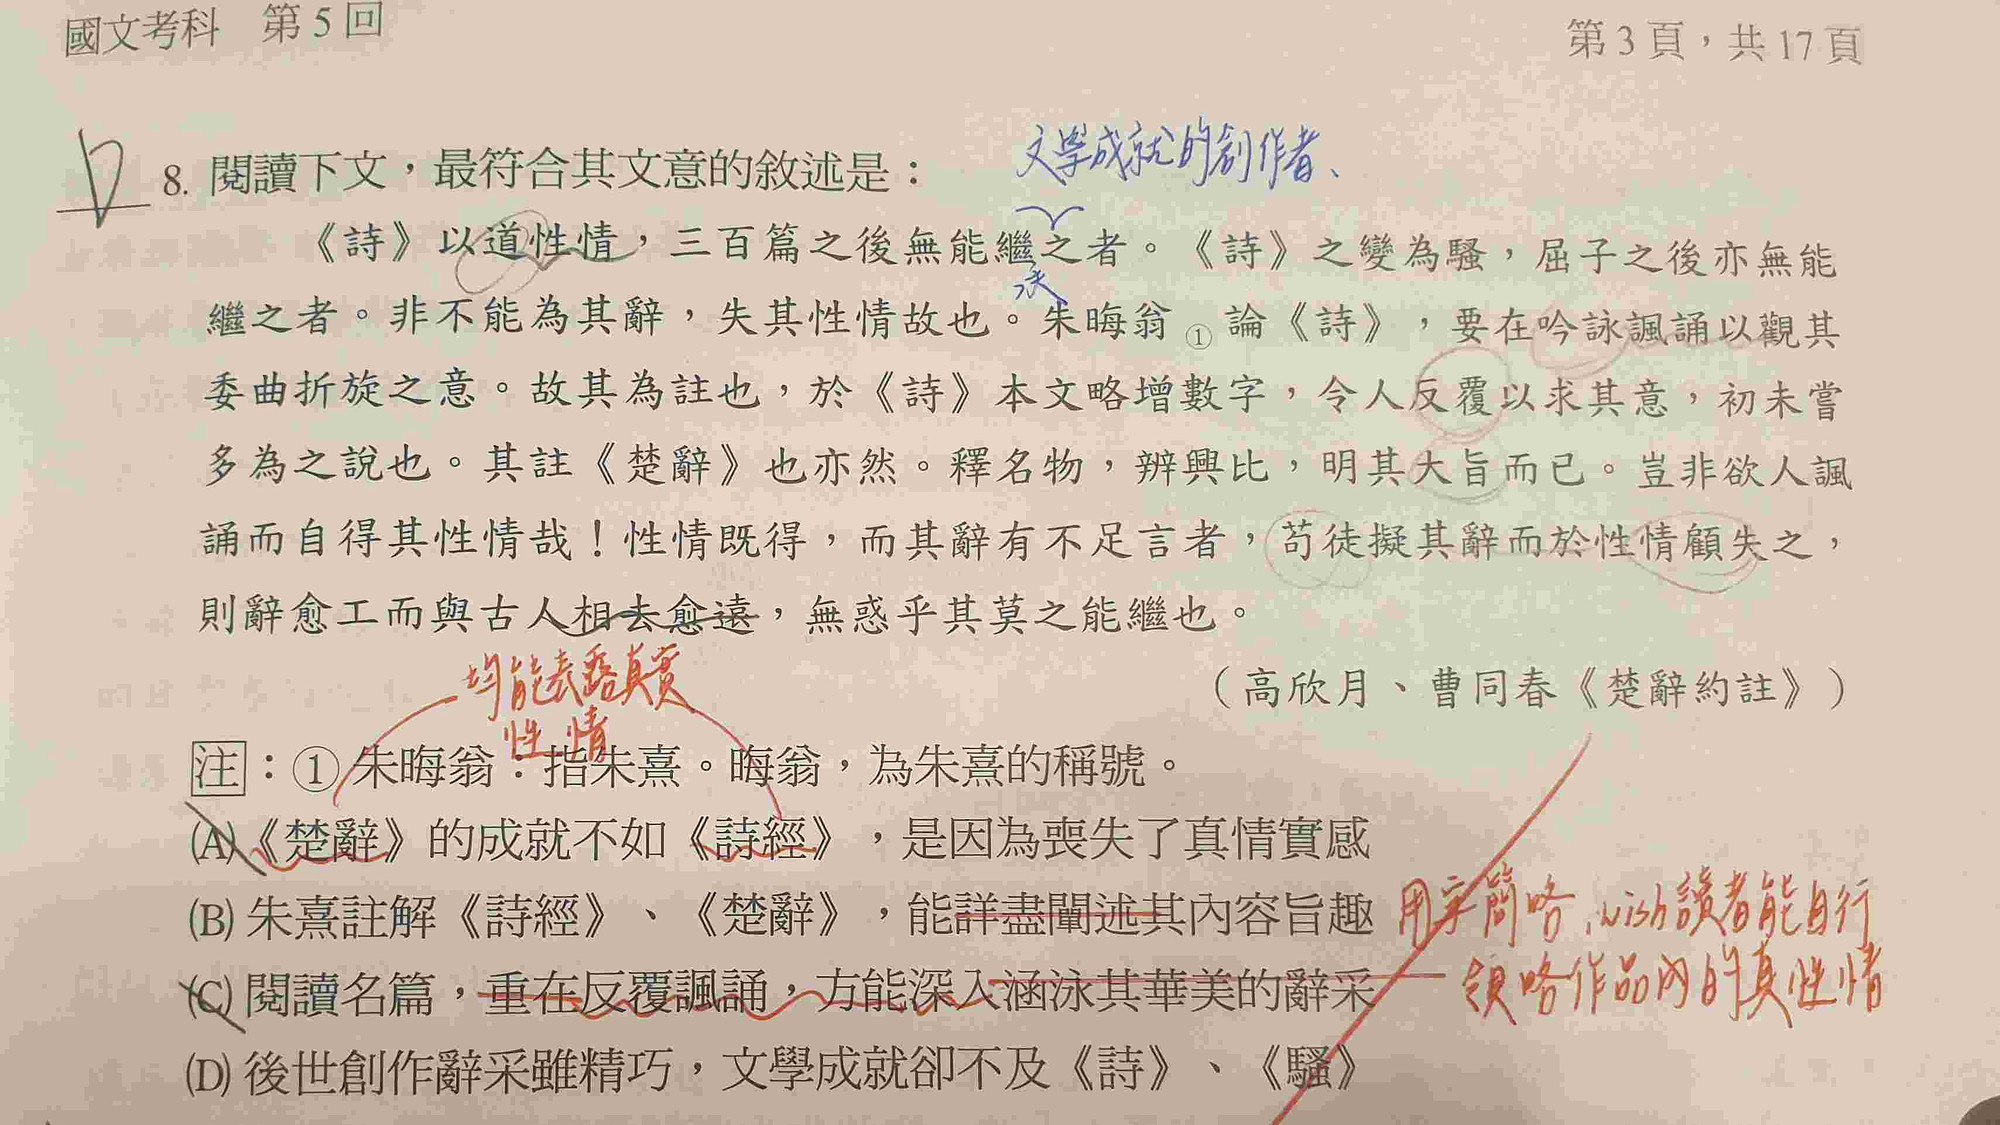 國文考科 第5回
第3頁，共17頁
文學成就的創作者、
D 8. 閱讀下文，最符合其文意的敘述是：
《詩》以道性情，三百篇之後無能繼之者。《詩》之變為騷，屈子之後亦無能
承
繼之者。非不能為其辭，失其性情故也。朱晦翁①論《詩》，要在吟詠諷誦以觀其
委曲折旋之意。故其為註也，於《詩》本文略增數字，令人反覆以求其意，初未嘗
多為之說也。其註《楚辭》也亦然。釋名物，辨興比，明其大旨而已。豈非欲人諷
誦而自得其性情哉！性情既得，而其辭有不足言者，苟徒擬其辭而於性情顧失之，
則辭愈工而與古人相去愈遠，無惑乎其莫之能繼也。
（高欣月、曹同春《楚辭約註》）
均能表露真實
性情
注：①朱晦翁：指朱熹。晦翁，為朱熹的稱號。
(A)《楚辭》的成就不如《詩經》，是因為喪失了真情實感
(B) 朱熹註解《詩經》、《楚辭》，能詳盡闡述其內容旨趣
用字簡略，wish讀者能自行
(C) 閱讀名篇，重在反覆諷誦，方能深入涵泳其華美的辭采
領略作品內的真性情
(D) 後世創作辭采雖精巧，文學成就卻不及《詩》、《騷》